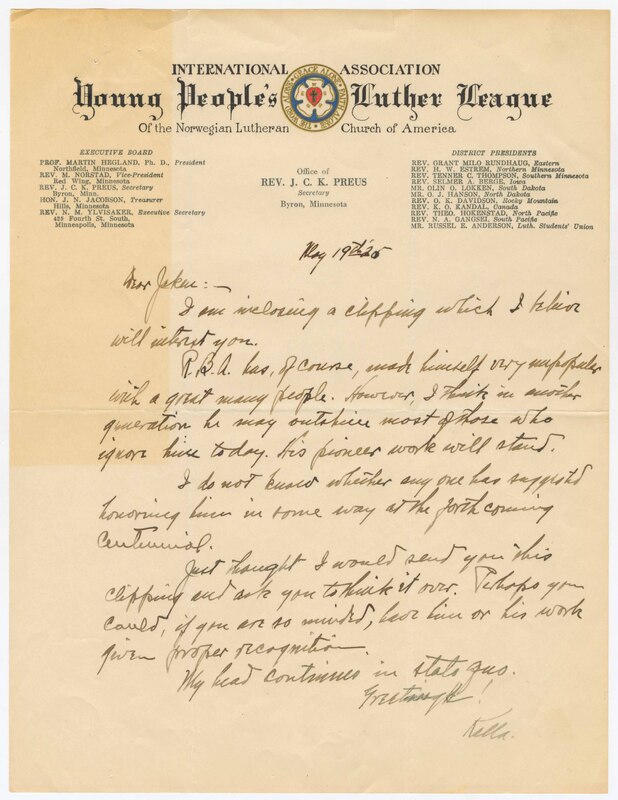 INTERNATIONAL ASSOCIATION
Young People's Luther League
Of the Norwegian Lutheran Church of America
GRACE ALONE FAITH ALONE THE WORD ALONE
EXECUTIVE BOARD
PROF. MARTIN HEGLAND, Ph. D., President
Northfield, Minnesota
REV. M. NORSTAD, Vice-President
Red Wing, Minnesota
REV. J. C. K. PREUS, Secretary
Byron, Minn.
HON. J. N. JACOBSON, Treasurer
Hills, Minnesota
REV. N. M. YLVISAKER, Executive Secretary
425 Fourth St. South,
Minneapolis, Minnesota
Office of
REV. J. C. K. PREUS
Secretary
Byron, Minnesota
DISTRICT PRESIDENTS
REV. GRANT MILO RUNDHAUG, Eastern
REV. H. W. ESTREM, Northern Minnesota
REV. TENNER C. THOMPSON, Southern Minnesota
REV. SELMER A. BERGE, Iowa
MR. OLIN O. LOKKEN, South Dakota
MR. O. J. HANSON, North Dakota
REV. O. K. DAVIDSON, Rocky Mountain
REV. K. O. KANDAL, Canada
REV. THEO. HOKENSTAD, North Pacific
REV. N. A. GANGSEI, South Pacific
MR. RUSSEL E. ANDERSON, Luth. Students' Union
May 19th '25
Dear Jaken:—
I am inclosing a clipping which I believe
will interest you.
R.B.A. has, of course, made himself very unpopular
with a great many people. However, I think in another
generation he may outshine most of those who
ignore him today. His pioneer work will stand.
I do not know whether any one has suggested
honoring him in some way at the forthcoming
Centennial.
Just thought I would send you this
clipping and ask you to think it over. Perhaps you
could, if you are so minded, have him or his work
given proper recognition.
My head continues in stato quo.
Greetings!
Kalla.